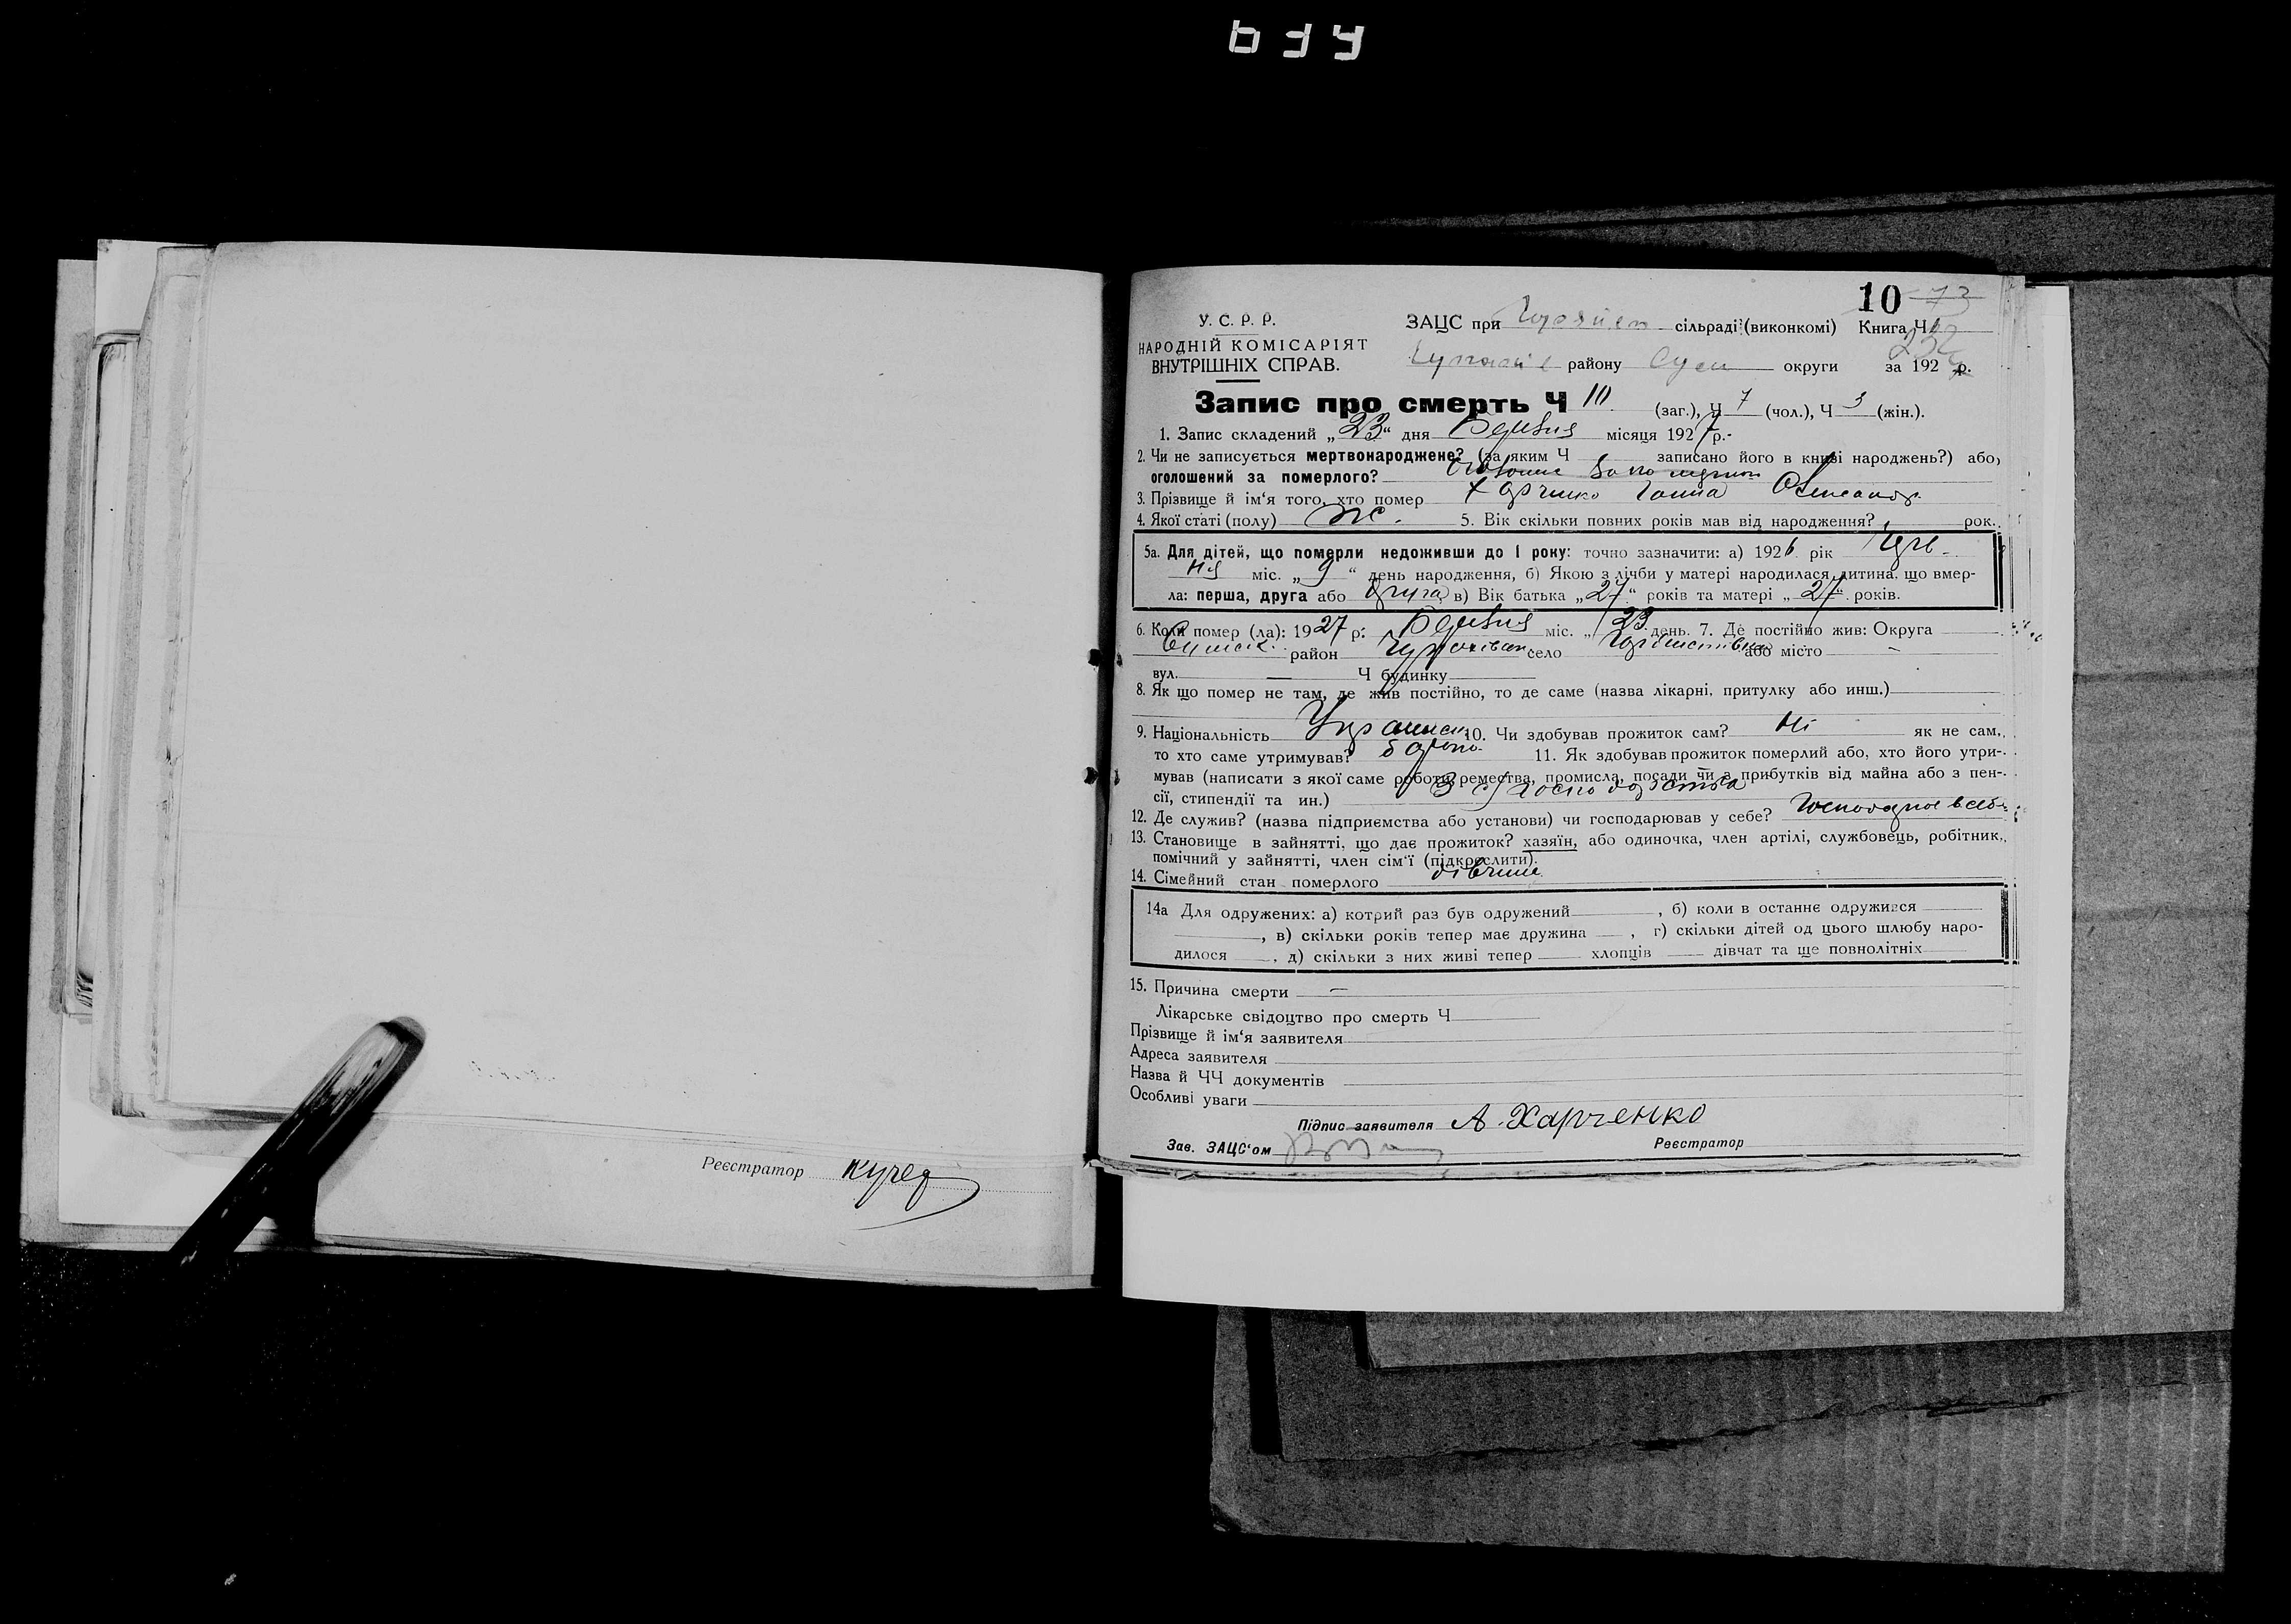 Реєстратор Кучер
10 73
У. С. Р. Р.
НАРОДНІЙ КОМІСАРІЯТ
ВНУТРІШНІХ СПРАВ.
ЗАЦС при сільраді (виконкомі) Книга Ч
району Сум округи за 1927 р.
Запис про смерть Ч 10 (заг.), Ч 7 (чол.), Ч 3 (жін.).
1. Запис складений „23“ дня Березня місяця 1927 р.
2. Чи не записується мертвонароджене? (за яким Ч записано його в книзі народжень?) або,
оголошений за померлого?
3. Прізвище й ім‘я того, хто помер Харченко Ганна Олександр.
4. Якої статі (полу) Ж. 5. Вік скільки повних років мав від народження? рок.
5а. Для дітей, що померли недоживши до 1 року: точно зазначити: а) 1926 рік Черв-
ня міс. „9“ день народження, б) Якою з лічби у матері народилася дитина, що вмер-
ла: перша, друга або друга в) Вік батька „27“ років та матері „27“ років.
6. Коли помер (ла): 1927 р. Березня міс. „23 день. 7. Де постійно жив: Округа
Сумськ. район село або місто —
вул. — Ч будинку
8. Як що помер не там, де жив постійно, то де саме (назва лікарні, притулку або инш.)
9. Національність Украинськ. 10. Чи здобував прожиток сам? Ні як не сам,
то хто саме утримував? батько 11. Як здобував прожиток померлий або, хто його утри-
мував (написати з якої саме роботи, ремества, промисла, посади чи з прибутків від майна або з пен-
сії, стипендії та ин.) З с/господарства
12. Де служив? (назва підприємства або установи) чи господарював у себе? Господарює в себе
13. Становище в зайнятті, що дає прожиток? хазяїн, або одиночка, член артілі, службовець, робітник,
помічний у зайнятті, член сім‘ї (підкреслити).
14. Сімейний стан померлого дівчина
14а Для одружених: а) котрий раз був одружений , б) коли в останнє одружився
, в) скільки років тепер має дружина , г) скільки дітей од цього шлюбу наро-
дилося , д) скільки з них живі тепер хлопців дівчат та ще повнолітніх
15. Причина смерти —
Лікарське свідоцтво про смерть Ч
Прізвище й ім‘я заявителя
Адреса заявителя
Назва й ЧЧ документів
Особливі уваги
Підпис заявителя А. Харченко
Зав. ЗАЦС‘ом Реєстратор